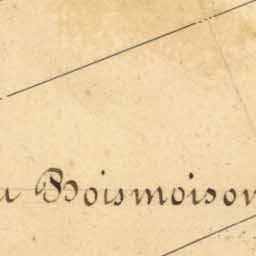 u Boismoison